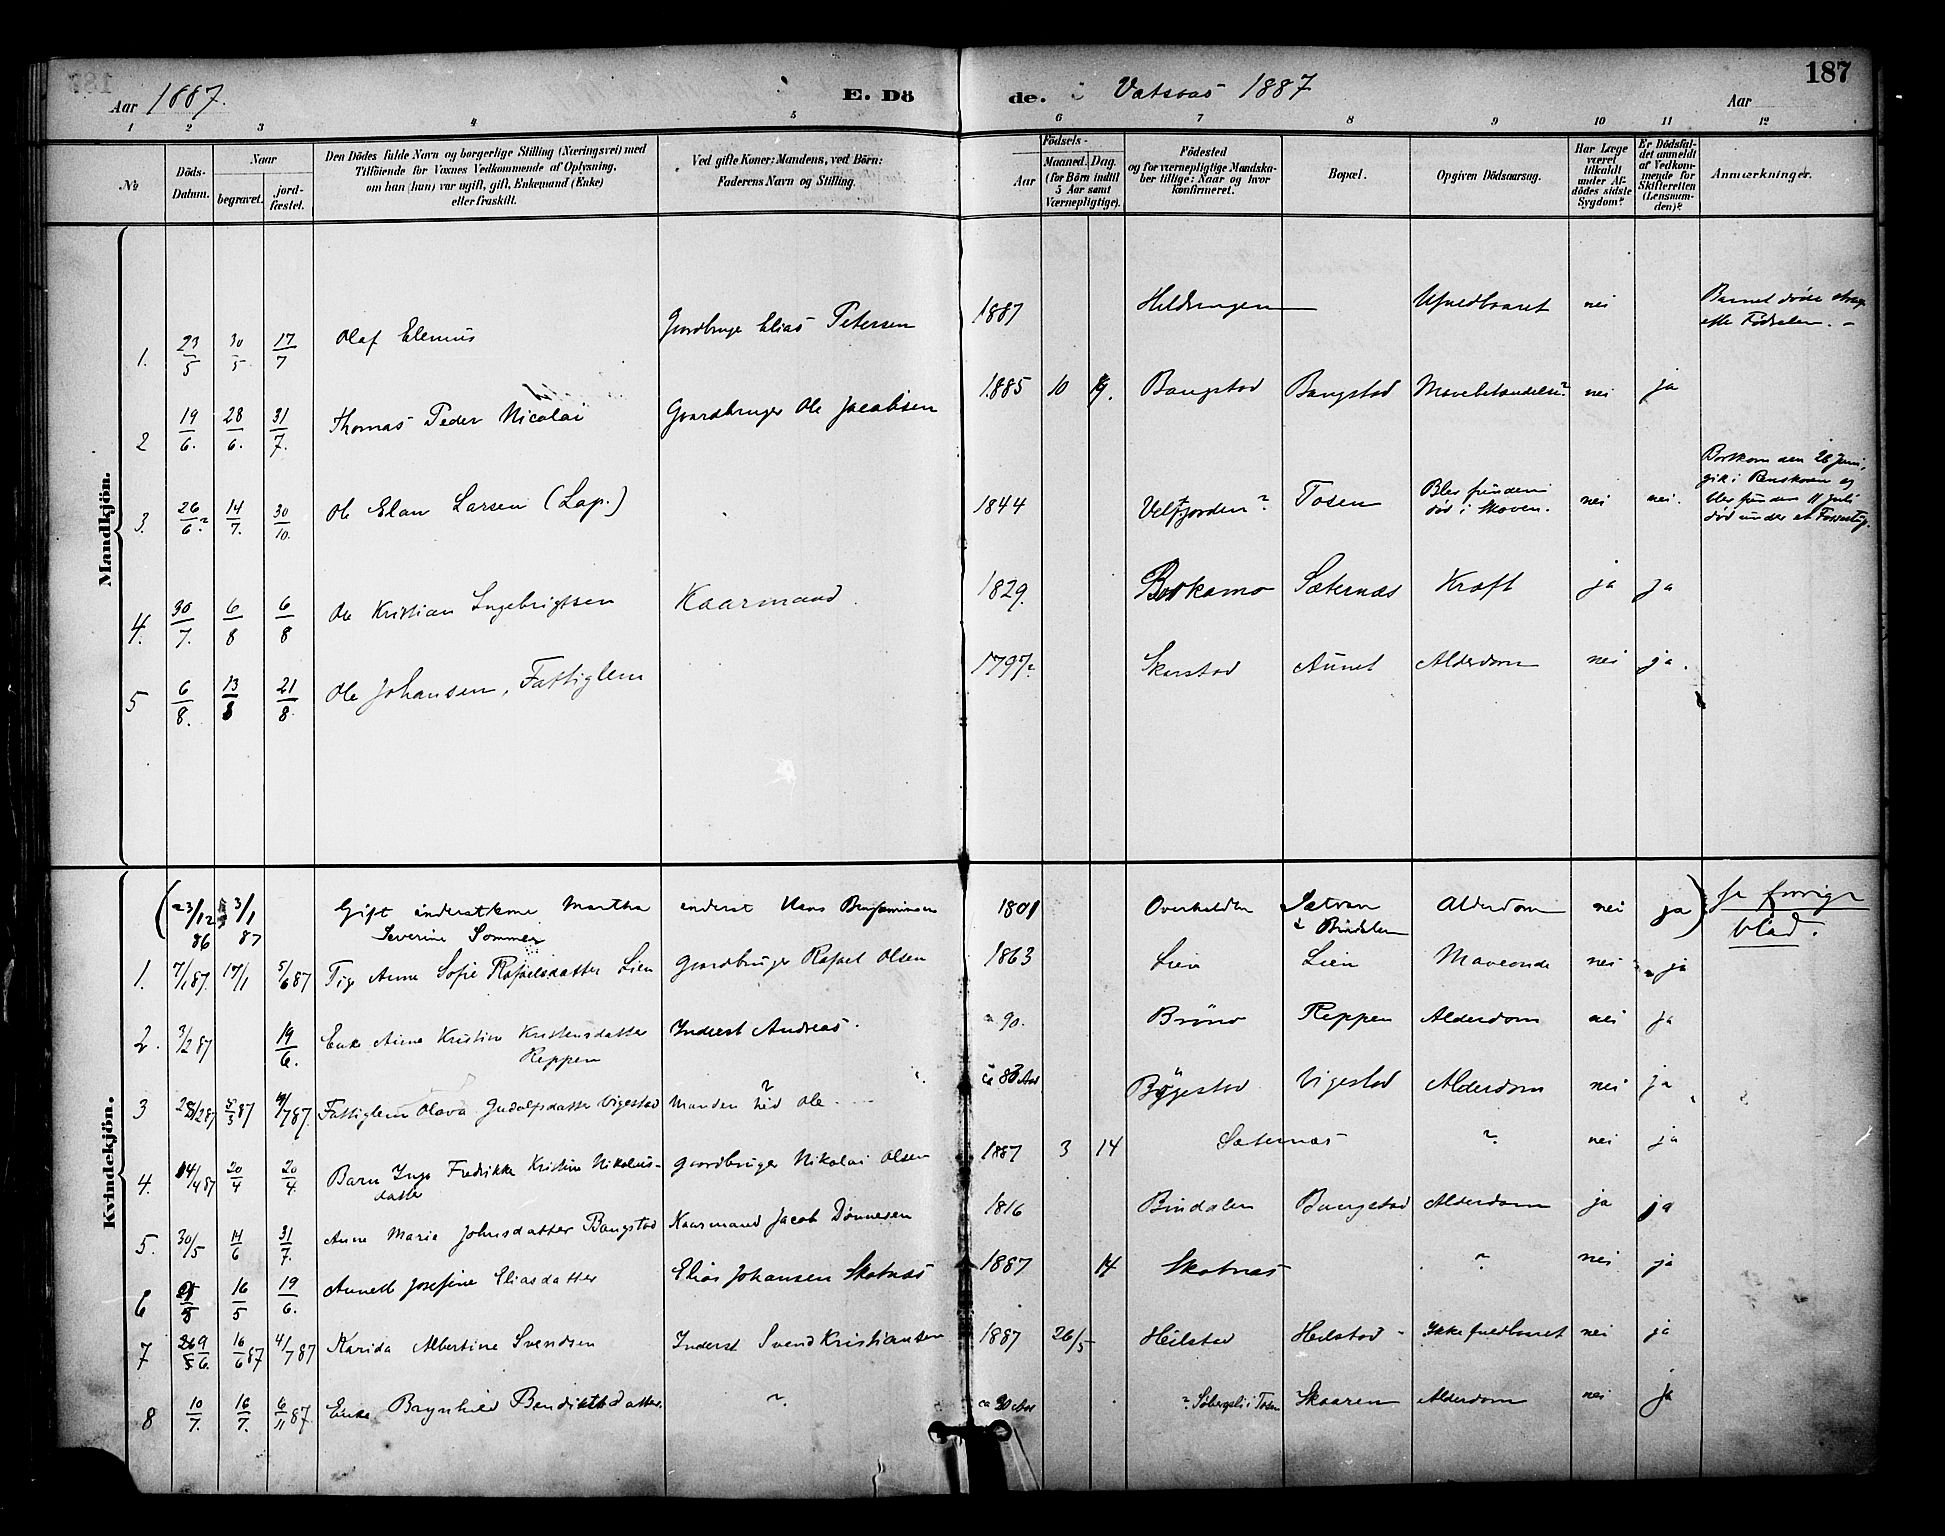 187
Aar 1887. E. Döde. i Vatsaas 1887 Aar
1 2 3 4 5 6 7 8 9 10 11 12
No
Döds-Datum.
Naar
begravet.
jord-fæstet.
Den Dödes fulde Navn og borgerlige Stilling (Næringsvei) med
Tilföiende for Voxnes Vedkommende af Oplysning,
om han (hun) var ugift, gift, Enkemand (Enke)
eller fraskilt.
Ved gifte Koner: Mandens, ved Börn:
Faderens Navn og Stilling.
Födsels-
Aar
Maaned. Dag.
(for Börn indtil
5 Aar samt
Værnepligtige).
Födested
og for værnepligtige Mandska-
ber tillige: Naar og hvor
konfirmeret.
Bopæl.
Opgiven Dödsaarsag.
Har Læge
været
tilkaldt
under Af-
dödes sidste
Sygdom?
Er Dödsfal-
det anmeldt
af Vedkom-
mende for
Skifteretten
(Lensman-
den)?
Anmærkninger.
Mandkjön.
1. 23/5 30/5 17/7 Olaf Elenius Gaardbruge Elias Petersen 1887 Heldringen Ufuldbaaret nei Barnet døde strax
efter Fødselen. –
2 19/6. 28/6. 31/7. Thomas Peder Nicolai Gaardbruger Ole Jacobsen 1885 10 19. Bangstad Bangstad Mavebetændelse? nei ja
3. 26/6? 14/7. 30/10. Ole Elan Larsen (Lap.) 1844 Velfjorden? Tosen Blev funden
død i Skoven. nei nei. Bortkom den 26 Juni,
gik i Renskoven og
blev funden 11 Juli
død under et
4. 30/7. 6/8 6/8 Ole Kristian Ingebrigtsen Kaarmand. 1829. Bortkamo Sæternæs Kræft ja ja
5 6/8. 13/8 21/8. Ole Johansen, Fattiglem 1797? Skarstad Aunet Alderdom nei ja.
Kvindekjön.
( 23/12 86 3/1 87 Gift inderstkone Martha
Severine Sommer inderst Hans Benjaminsen 1801 Overhalden
i Bindalen Alderdom nei ja ) se forrige
blad.
1. 7/1 87. 17/1 5/6 87 Pige Anne Sofie Rafaelsdatter Lien Gaardbruger Rafael Olsen 1863 Lien Lien Maveonde nei ja
2. 3/2 87 19/6. Enke Anne Kristine Kristensdatter
Reppen Inderst Andreas. ca 90. Brönö Reppen Alderdom nei ja
3 28/2 87 5/3 87 4/7 87. Fattiglem Olava Gudolfsdatter Vigestad Manden héd Ole ? ca 83 Aar Bøgestad Vigestad Alderdom nei ja
4. 14/4 87 20/4 20/4. Barn Inga Fredrikke Kristine Nikolais-
datter Gaardbruger Nikolai Olsen 1887 3 14 Sæternæs ? nei ja
5. 30/5 14/6 31/7. Anne Marie Johnsdatter Bangstad Kaarmand Jacob Dønnesen 1816 Bindalen Bangstad Alderdom ja ja
6 16/5 19/6. Annette Josefine Eliasdatter Elias Johansen Skotnæs 1887 14 Skotnæs ? nei ja
7 9/6. 16/6 87 4/7 87 Karida Albertine Svendsen Inderst Svend Kristiansen 1887 26/5 Heilstad Heilstad Ikke fuldbaaret nei ja
8 10/7. 16/7. 6/11 87. Enke Brynhild Bendiktsdatter. ? ca 90 Aar ? i Tosen Skaaren Alderdom nei ja